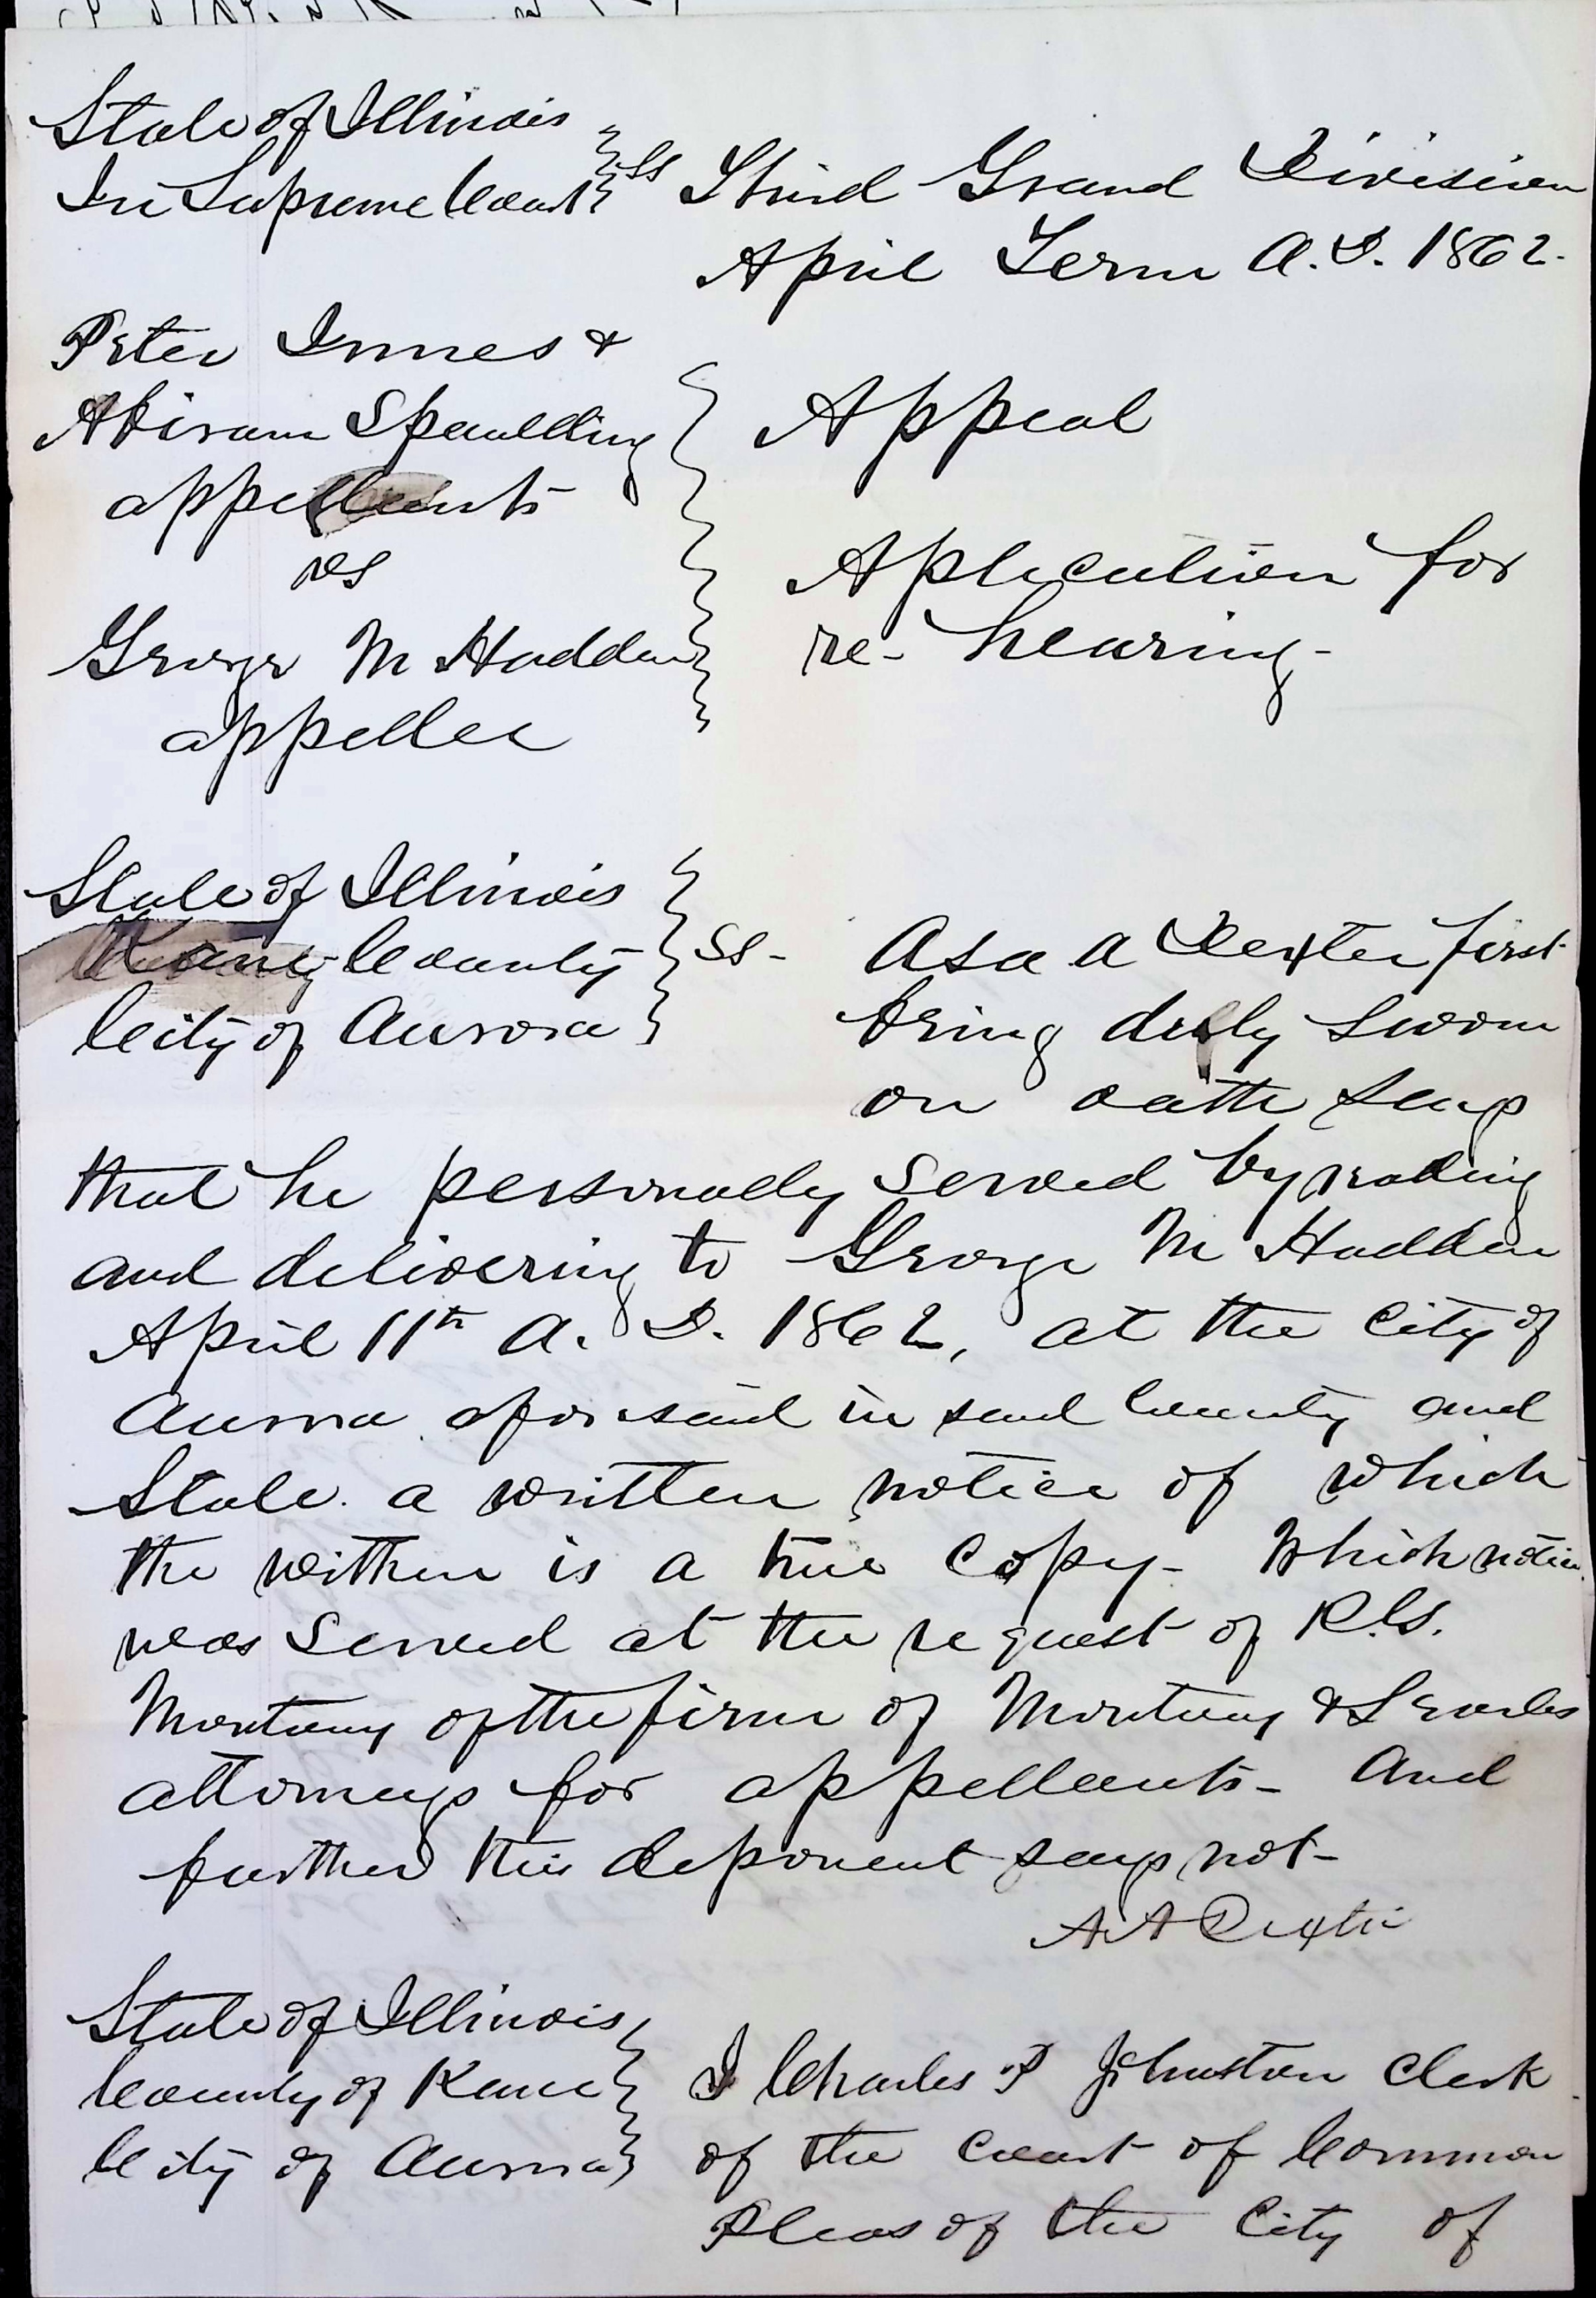 State of Illinois
In Supreme Court } ss Third Grand Division
April Term A.D. 1862.
Peter Innes &
Abiram Spaulding
appellants
vs
George M Hadden
appellee
Appeal
Aplication for
re-hearing-
State of Illinois
Kane County } ss-
City of Aurora
Asa A Dexter first
being duly sworn
on oath says
that he personally served by reading
and delivering to George M Hadden
April 11th A.D. 1862, at the City of
Aurora aforesaid in said County and
State. a written notice of which
the within is a true copy- Which notice
was served at the request of
Montony of the firm of Montony & Searles
attorneys for appellants- And
further this deponent says not-
A A Dexter
State of Illinois
County of Kane
City of Aurora
I Charles P Johnston Clerk
of the Court of Common
Pleas of the City of